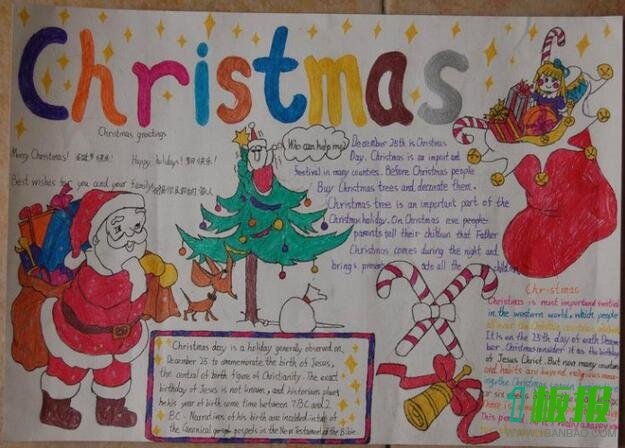 Christmas
Christmas greetings
Merry Christmas! 圣诞节快乐!
Happy holidays! 节日快乐!
Best wishes for you and your family
Who can help my?
December 25th is Christmas
Day. Christmas is an import ant
festival in many countries. Before Christmas people
Buy Christmas trees and decorate them.
Christmas tree is an important part of the
Christmas holiday. On Christmas eve people
parents tell their children that Father
Christmas comes during the night and
brings to all the children
Christmas day is a holiday generally observed on,
December 25 to commemorate the birth of Jesus,
the central of birth figure of Christianity. The exact
birthday of Jesus is not known, and historians place
his year of birth some time between 7 BC and 2
BC. Narratives of his birth are included in two of
the Canonical gospels in the New Testament of the Bible.
Christmas
Christmas is most important festival
in the western world. which people
all over the Christian
It is on the 25th day of each Decem
ber. Christmas consider it as the birthday
of Jesus Christ. But now many customs
and habits are beyond religious
ing. the Christmas season
for six
There is
This
板报
WWW.1BANBAO.NET